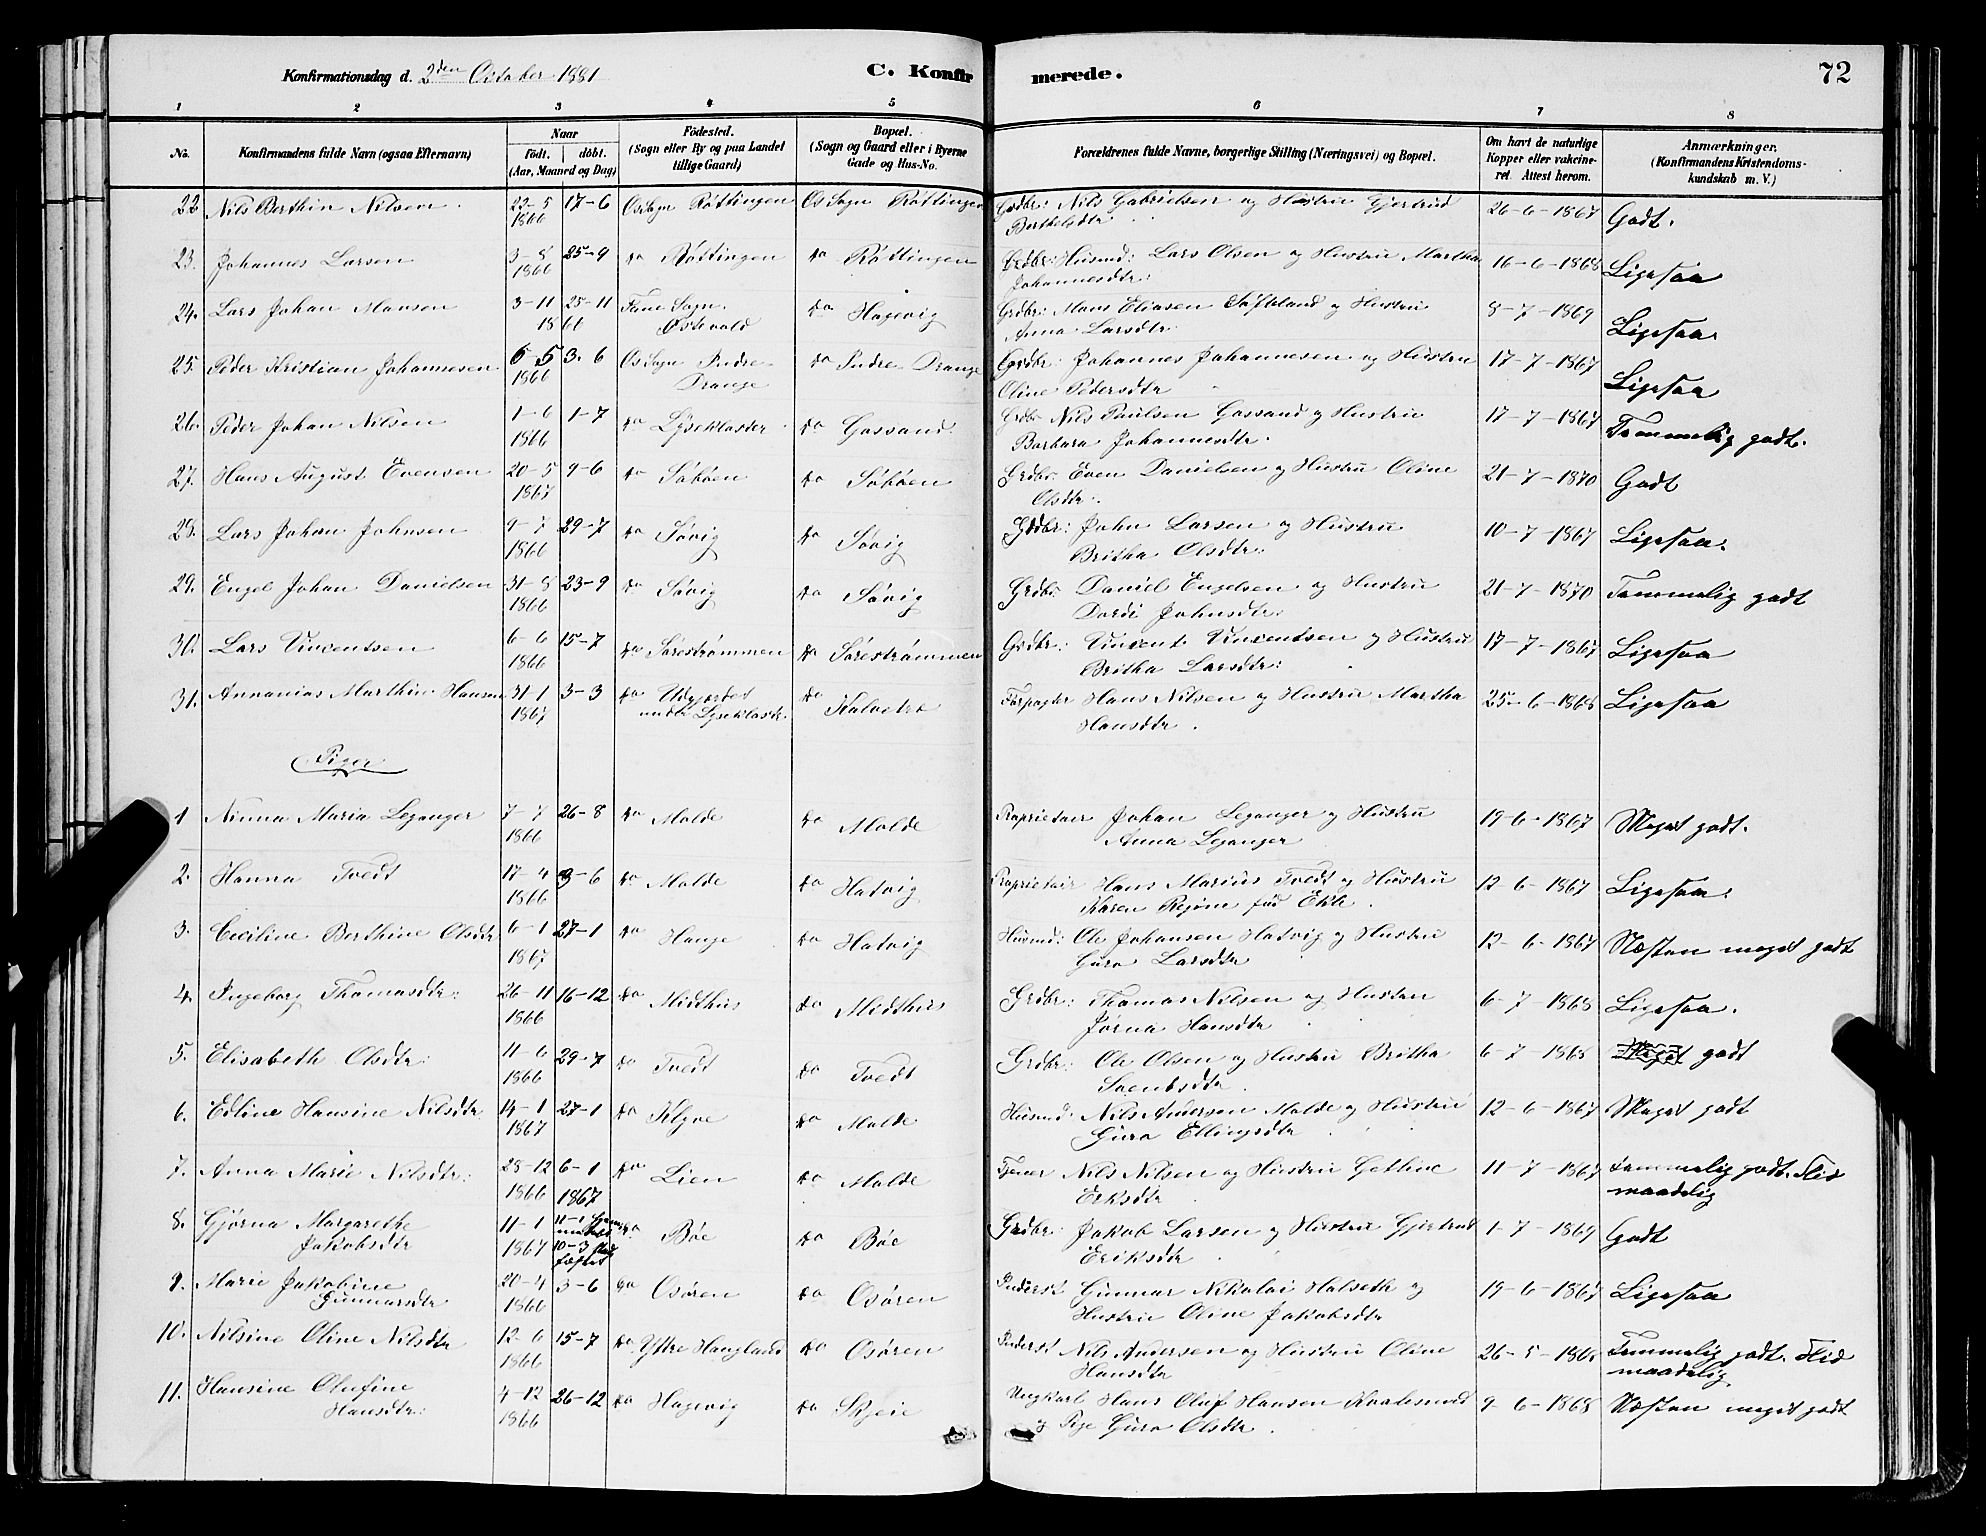 Konfirmationsdag d. 2den October 1881
C. Konfirmerede.
72
1 2 3 4 5 6 7 8
No.
Konfirmandens fulde Navn (ogsaa Efternavn)
Naar
födt. döbt.
(Aar, Maaned og Dag)
Födested.
(Sogn eller By og paa Landet
tillige Gaard)
Bopæl.
(Sogn og Gaard eller i Byerne
Gade og Hus-No.
Forældrenes fulde Navne, borgerlige Stilling (Næringsvei) og Bopæl.
Om havt de naturlige
Kopper eller vakcine-
ret. Attest herom.
Anmærkninger.
(Konfirmandens Kristendoms-
kundskab m. V.)
22 Nils Berthin Nilsen 22-5 17-6 Os Sogn Røttingen Os Sogn Røttingen Grdbr: Nils Gabrielsen og Hustru Gjertrud 26-6-1867 Godt.
1866 Berthelsdtr
23. Johannes Larsen 3-8 25-9 do Røttingen do Røttingen Husmd: Lars Olsen og Hustru Martha 16-6-1868 Ligesaa
1866 Johannesdtr:
24. Lars Johan Monsen 3-11 25-11 Fane Sogn do Hagevig Grdbr: Mons Eliasen og Hustru 8-7-1869 Ligesaa.
1866 Østevold Anna Larsdtr
25. Peder Kristian Johannesen 6-5 3-6 Os Sogn Indre do Indre Drange Grdbr: Johannes Johannesen og Hustru 17-7-1867 Ligesaa
1866 Drange Oline Pedersdtr
26. Peder Johan Nilsen 1-6 1-7 do Lysekloster do Gaasand Grdbr Nils Paulsen Gaasand og Hustru 17-7-1867 Temmelig godt.
1866 Barbara Johannesdtr.
27. Hans August Evensen 20-5 9-6 do Søbøen do Søbøen Grdbr. Even Danielsen og Hustru Oline 21-7-1870 Godt
1867 Olsdtr.
28. Lars Johan Johnsen 9-7 29-7 do Søvig do Søvig Grdbr: John Larsen og Hustru 10-7-1867 Ligesaa.
1866 Britha Olsdtr:
29. Engel Johan Danielsen 31-8 23-9 do Søvig do Søvig Grdbr. Daniel Engelsen og Hustru 21-7-1870 Temmelig godt
1866 Dordi Johnsdtr:
30. Lars Vincentsen 6-6 15-7 do Sørestrømmen do Sørestrømmen Grdbr: Vincent Vincentsen og Hustru 17-7-1867 Ligesaa
1866 Britha Larsdtr:
31. Annanias Marthin Hansen 31-1 3-3 do Udgjordet do Kalvetræ Forpagter Hans Nilsen og Hustru Martha 25-6-1868 Ligesaa
1867 under Lyseklostr. Hansdtr.
Piger
1 Ninna Maria Leganger 7-7 26-8 do Molde do Molde Proprietair Johan Leganger og Hustru 19-6-1867 Meget godt.
1866 Anna Leganger
2. Hanna Tvedt 17-4 3-6 do Molde do Hatvig Proprietair Hans Marius Tvedt og Hustru 12-6-1867 Ligesaa.
1866 Karen Regine
3. Ceciline Berthine Olsdtr 6-1 27-1 do Hauge do Hatvig Husmd: Ole Johansen Hatvig og Hustru 12-6-1867 Næsten meget godt
1867 Guro Larsdtr
4. Ingeborg Thomasdtr: 26-11 16-12 do Midthus do Midthus Grdbr: Thomas Nilsen og Hustru 6-7-1868 Ligesaa.
1866 Jørna Hansdtr
5. Elisabeth Olsdtr: 11-6 29-7 do Tvedt do Tvedt Grdbr: Ole Olsen og Hustru Britha 6-7-1868 Meget godt
1866
6. Edline Hansine Nilsdtr 14-1 27-1 do Klyve do Molde Husmd: Nils Andersen Molde og Hustru 12-6-1867 Meget godt
1867 Guro Ellingsdtr
7. Anna Marie Nilsdtr: 28-12 6-1 do Lien do Molde Tjener Nils Nilsen og Hustru 11-7-1867 Temmelig godt. Flid
1866 1867 Eriksdtr maadelig
8. Gjørna Margarethe 11-1 11-1 Hjemme- do Bøe do Bøe Grdbr: Jakob Larsen og Hustru Gjertrud 1-7-1869 Godt
Jakobsdtr 1867 10-3 stad Eriksdtr
fæstet
9. Marie Jakobine 20-4 3-6 do Osøren do Osøren Inderst Gunnar Nikolai Halseth og 19-6-1867 Ligesaa
Gunnarsdtr 1866 Hustru Oline Jakobsdtr
10. Nilsine Oline Nilsdtr 12-6 15-7 do Yttre Haugland do Osøren Inderst Nils Andersen og Hustru Oline 26-5-1868 Temmelig godt. Flid
1866 Hansdtr maadelig
11. Hansine Olufine 4-12 26-12 do Hagevig do Skjeie Ungkarl Hans Oluf Hansen 9-6-1868 Næsten meget godt
Hansdtr: 1866 og Pige Guro Olsdtr.